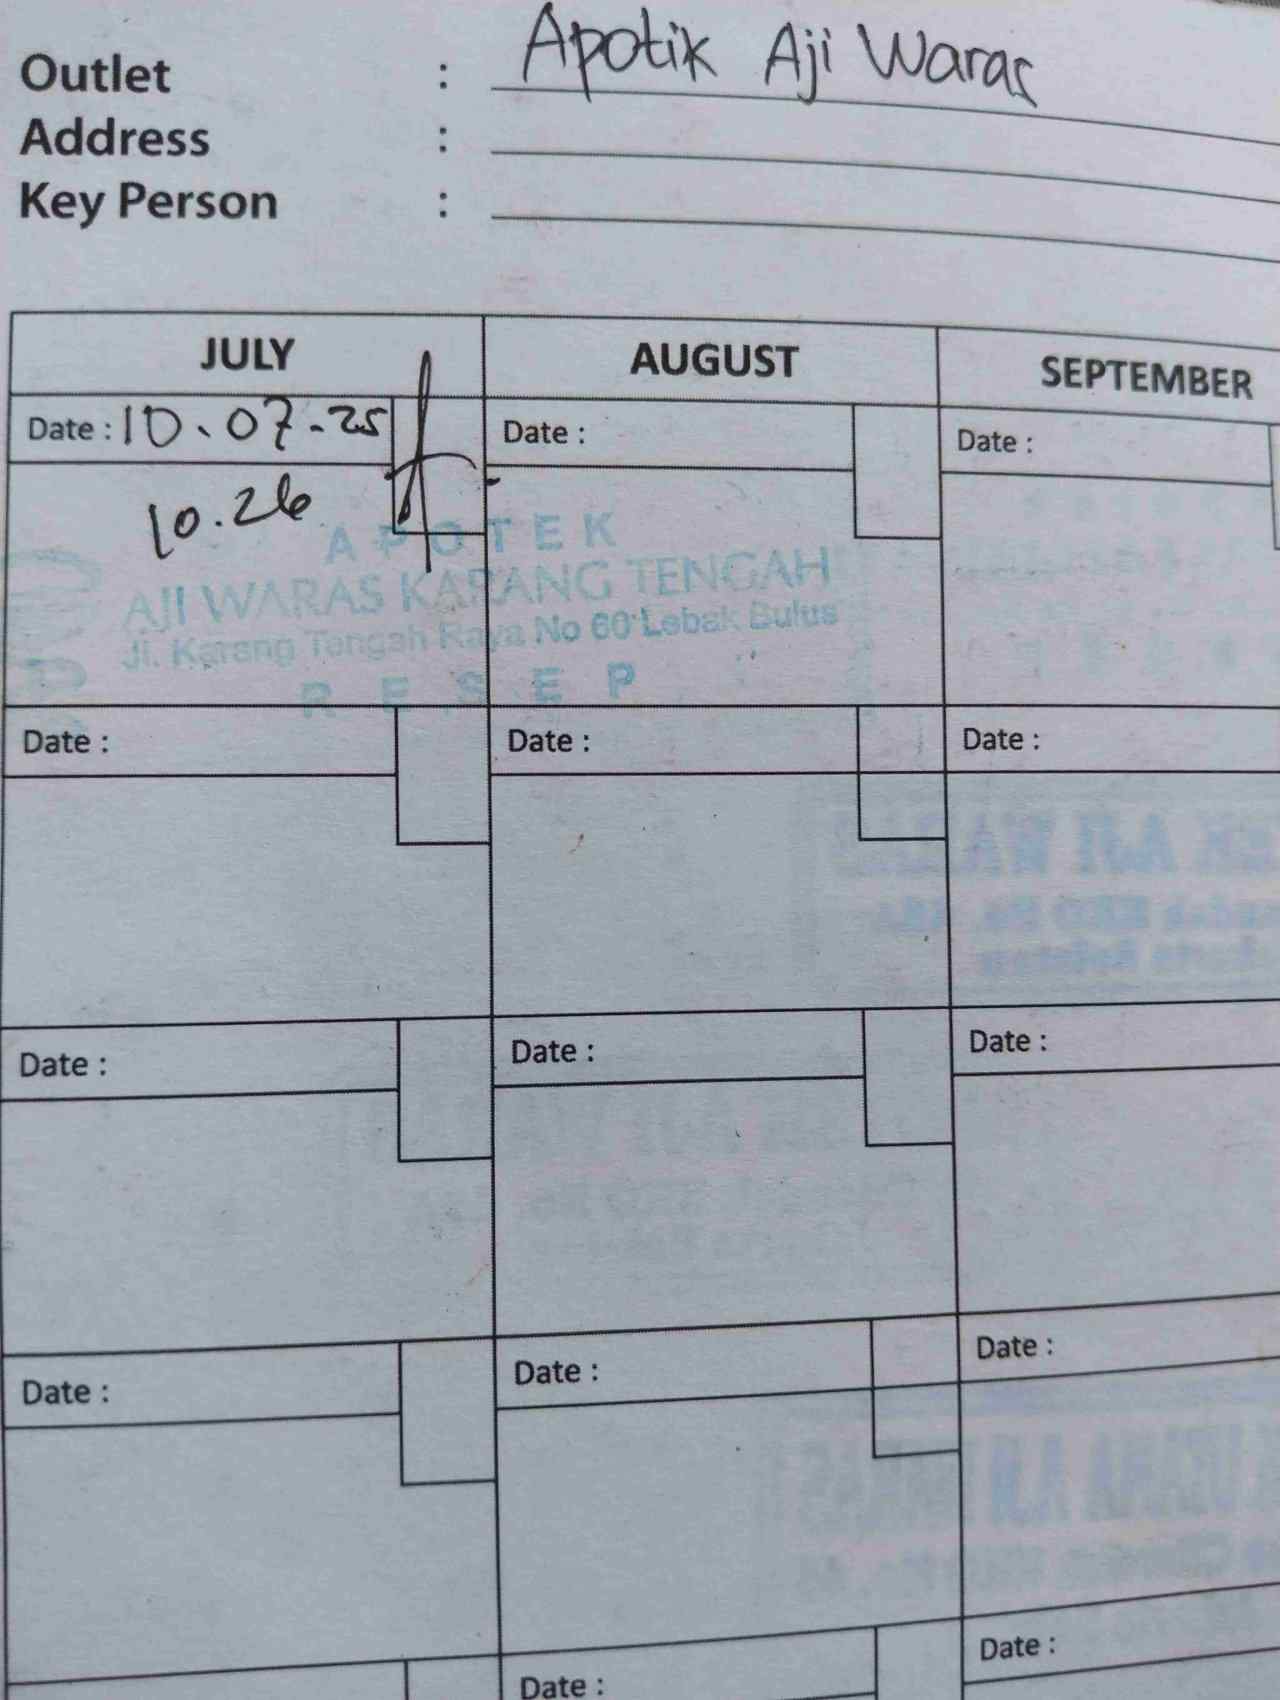 Outlet : Apotik Aji Waras
Address :
Key Person :
JULY AUGUST SEPTEMBER
Date : 10.07.25 Date : Date :
10.26
APOTEK
AJI WARAS KARANG TENGAH
Jl. Karang Tengah Raya No 60 Lebak Bulus
RESEP
Date : Date : Date :
Date : Date : Date :
Date : Date : Date :
Date : Date :